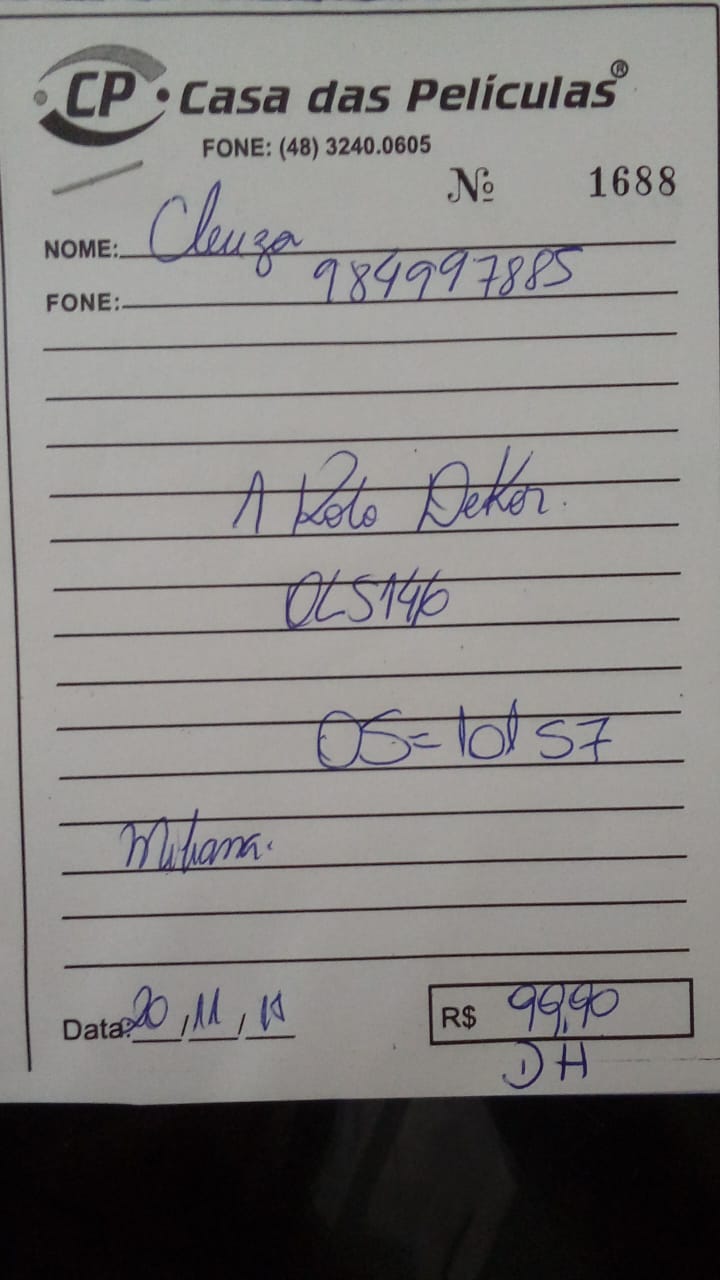 CP Casa das Películas®
FONE: (48) 3240.0605
Nº 1688
NOME: Cleuza
FONE: 984997885
1 Rolo DeKor.
OLS146
OS= 10157
Data: 20/11/
R$ 99,90
DH